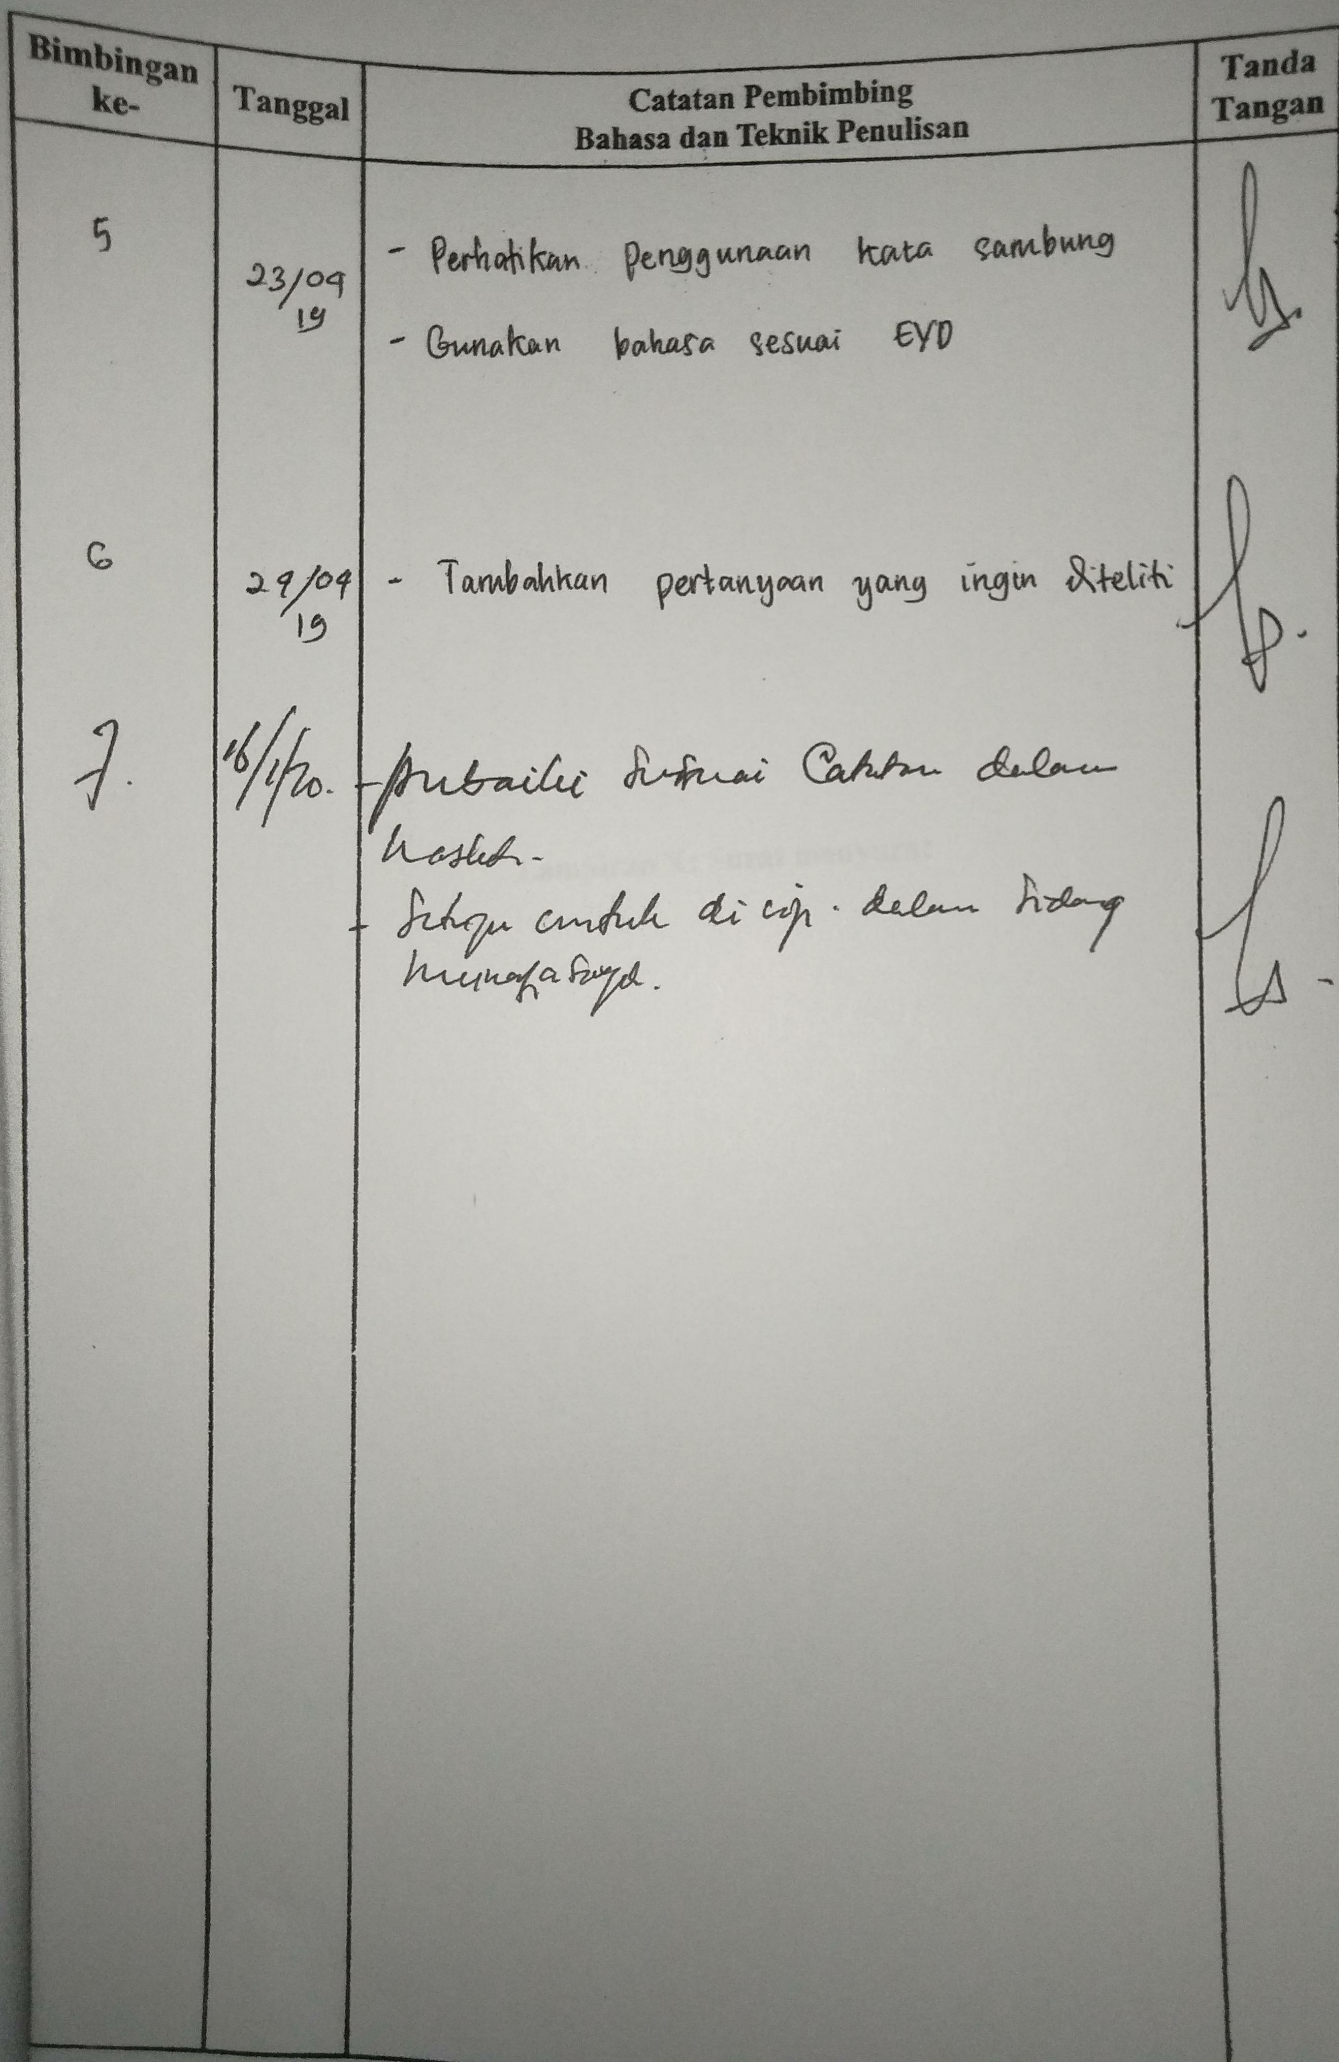 Bimbingan ke-
Tanggal
Catatan Pembimbing
Bahasa dan Teknik Penulisan
Tanda
Tangan
5
23/09
19
- Perhatikan penggunaan kata sambung
- Gunakan bahasa sesuai EYD
6
29/09
19
- Tambahkan pertanyaan yang ingin diteliti
7.
16/1/20.
- perbaiki sesuai Catatan dalam
naskah.
- Setuju untuk di dalam Sidang
munaqasayd.